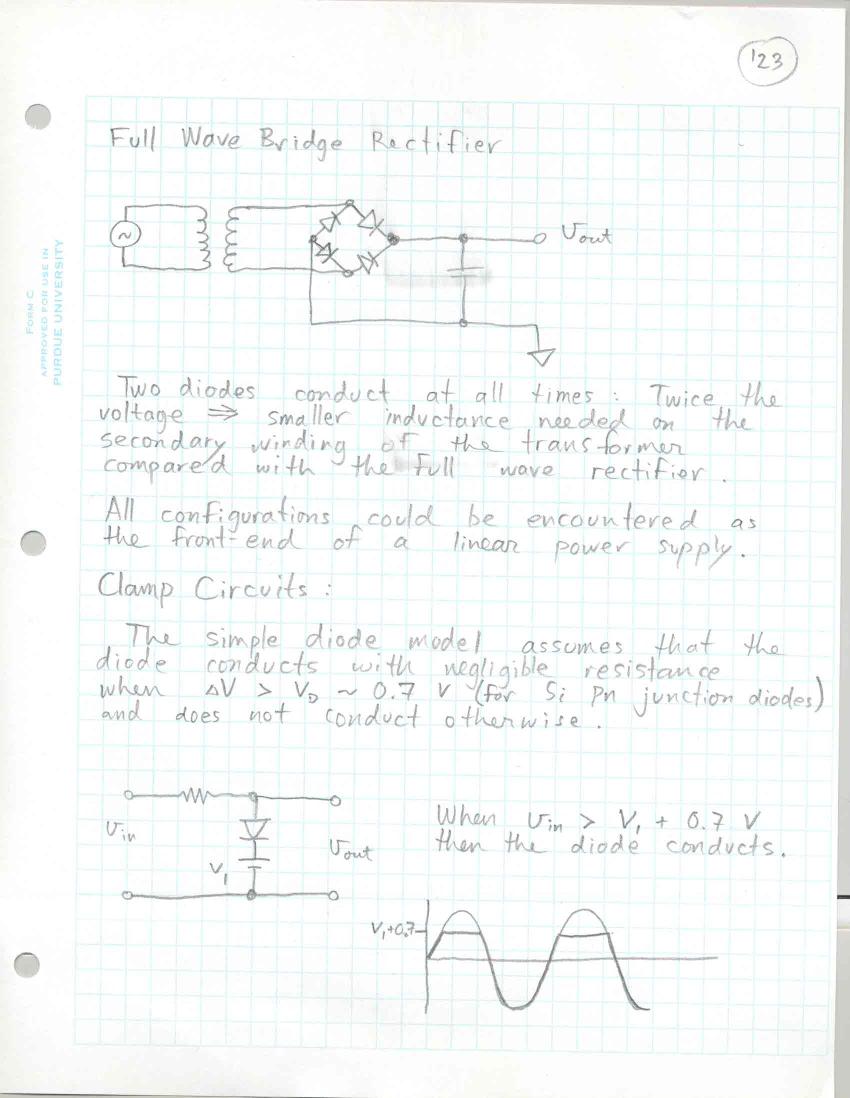 123
Full Wave Bridge Rectifier
~
Vout
FORM C
APPROVED FOR USE IN
PURDUE UNIVERSITY
Two diodes conduct at all times: Twice the
voltage ⇒ smaller inductance needed on the
secondary winding of the transformer
compared with the full wave rectifier.
All configurations could be encountered as
the front-end of a linear power supply.
Clamp Circuits:
The simple diode model assumes that the
diode conducts with negligible resistance
when ΔV > VD ~ 0.7 V (for Si pn junction diodes)
and does not conduct otherwise.
Vin
V1
Vout
When Vin > V1 + 0.7 V
then the diode conducts.
V1+0.7